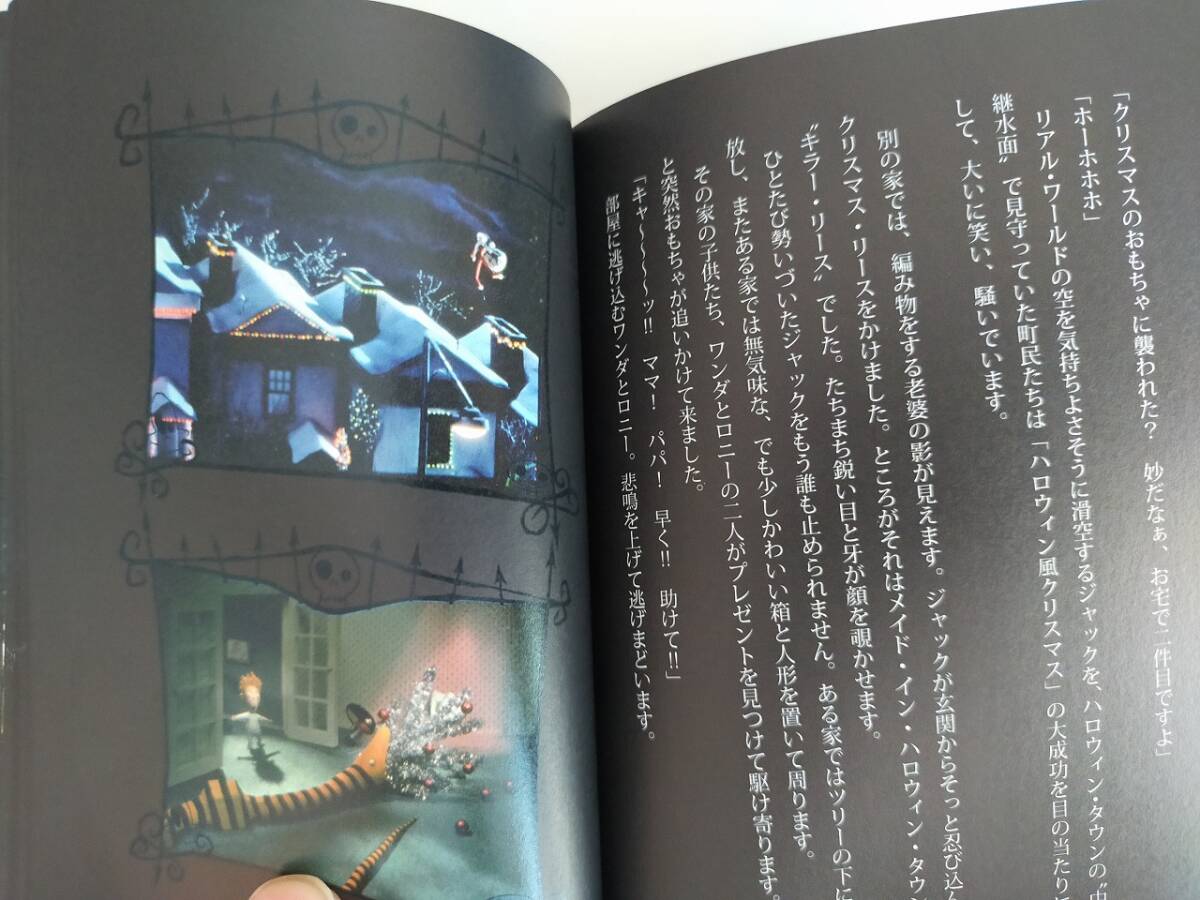 「クリスマスのおもちゃに襲われた？　妙だなぁ、お宅で二件目ですよ」
「ホーホホホ」
リアル・ワールドの空を気持ちよさそうに滑空するジャックを、ハロウィン・タウンの〝中
継水面〟で見守っていた町民たちは「ハロウィン風クリスマス」の大成功を目の当たりに
して、大いに笑い、騒いでいます。
別の家では、編み物をする老婆の影が見えます。ジャックが玄関からそっと忍び込ん
クリスマス・リースをかけました。ところがそれはメイド・イン・ハロウィン・タウン
〝キラー・リース〟でした。たちまち鋭い目と牙が顔を覗かせます。
ひとたび勢いづいたジャックをもう誰も止められません。ある家ではツリーの下に
放し、またある家では無気味な、でも少しかわいい箱と人形を置いて周ります。
その家の子供たち、ワンダとロニーの二人がプレゼントを見つけて駆け寄ります。
と突然おもちゃが追いかけて来ました。
「キャ〜〜〜〜ッ!!　ママ！　パパ！　早く!!　助けて!!」
部屋に逃げ込むワンダとロニー。悲鳴を上げて逃げまどいます。